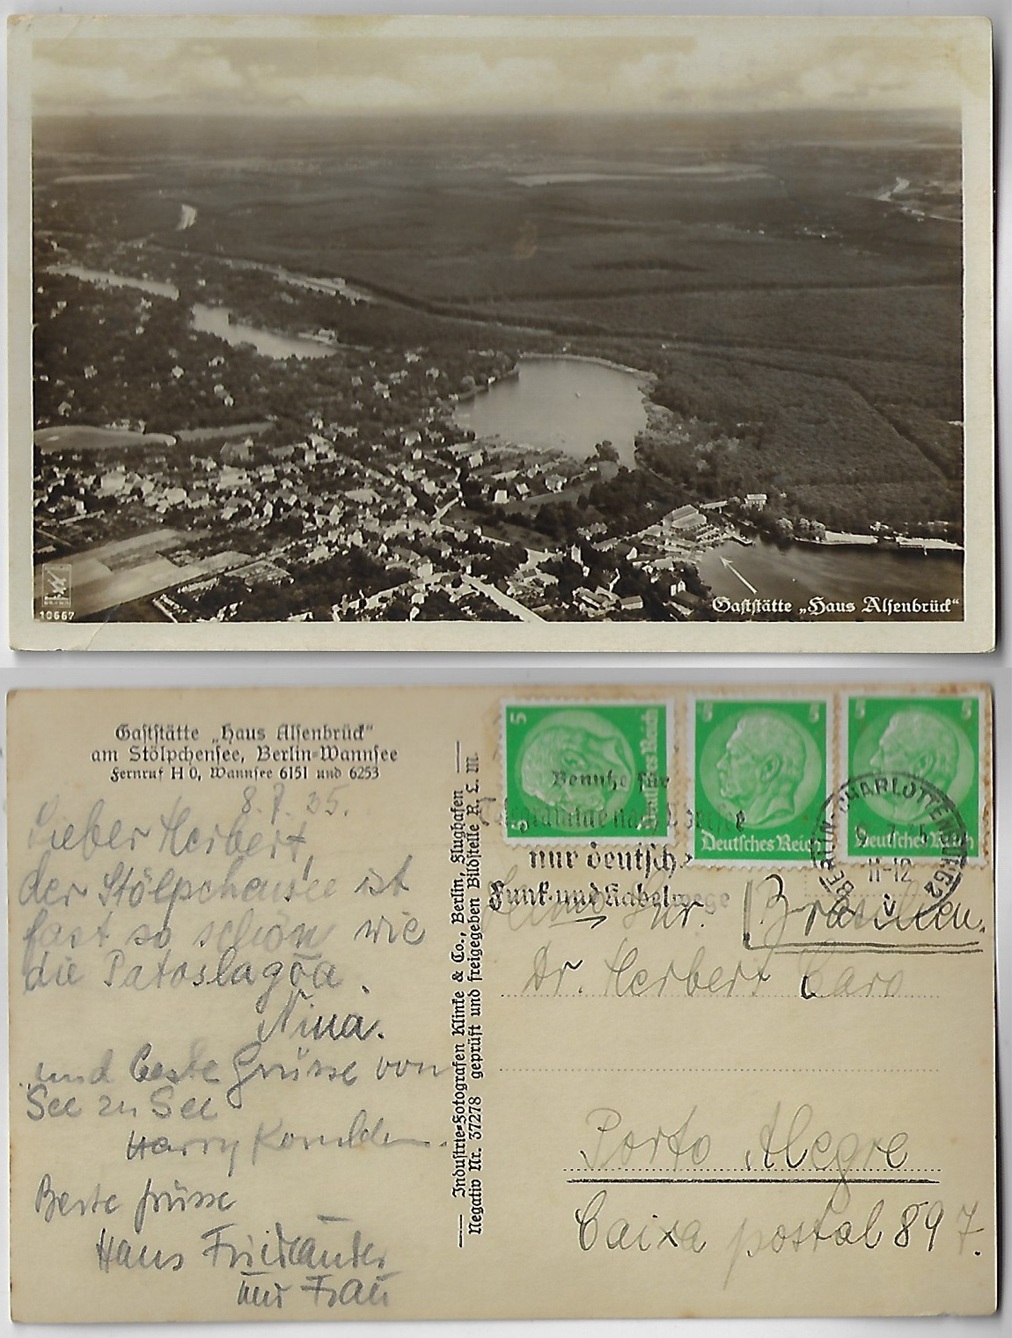 10667
Gaststätte „Haus Alsenbrück“
Gaststätte „Haus Alsenbrück“
am Stölpchensee, Berlin-Wannsee
Fernruf H 0, Wannsee 6151 und 6253
8.7.35.
Lieber Herbert,
der Stölpchensee ist
fast so schön wie
die Patoslagoa.
Nina.
und beste Grüsse von
See zu See
Harry
Beste Grüsse
Hans Friedländer
und Frau
Industrie-Fotografen Klinke & Co., Berlin, Flughafen
Negativ Nr. 37278 geprüft und freigegeben Bildstelle R. L. M.
5 5 Deutsches Reich
5 5 Deutsches Reich
5 5 Deutsches Reich
Benutze für
Telegramme nach Übersee
nur deutsche
Funk- und Kabelwege
BERLIN-CHARLOTTENBURG 2
11-12
v
Brasilien.
Dr. Herbert Caro
Porto Alegre
Caixa postal 897.